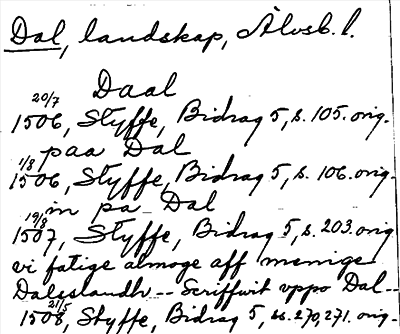 Dal, landskap, Älvsb. l.
Daal
20/7 1506, Styffe, Bidrag 5, s. 105. orig.
paa Dal
1/8 1506, Styffe, Bidrag 5, s. 106. orig.
in pa Dal
19/8 1507, Styffe, Bidrag 5, s. 203. orig
vi fatige almoge aff menige
Daleslandh -- Scriffwit vppo Dal --
21/5 1508, Styffe, Bidrag 5, ss. 270, 271. orig.